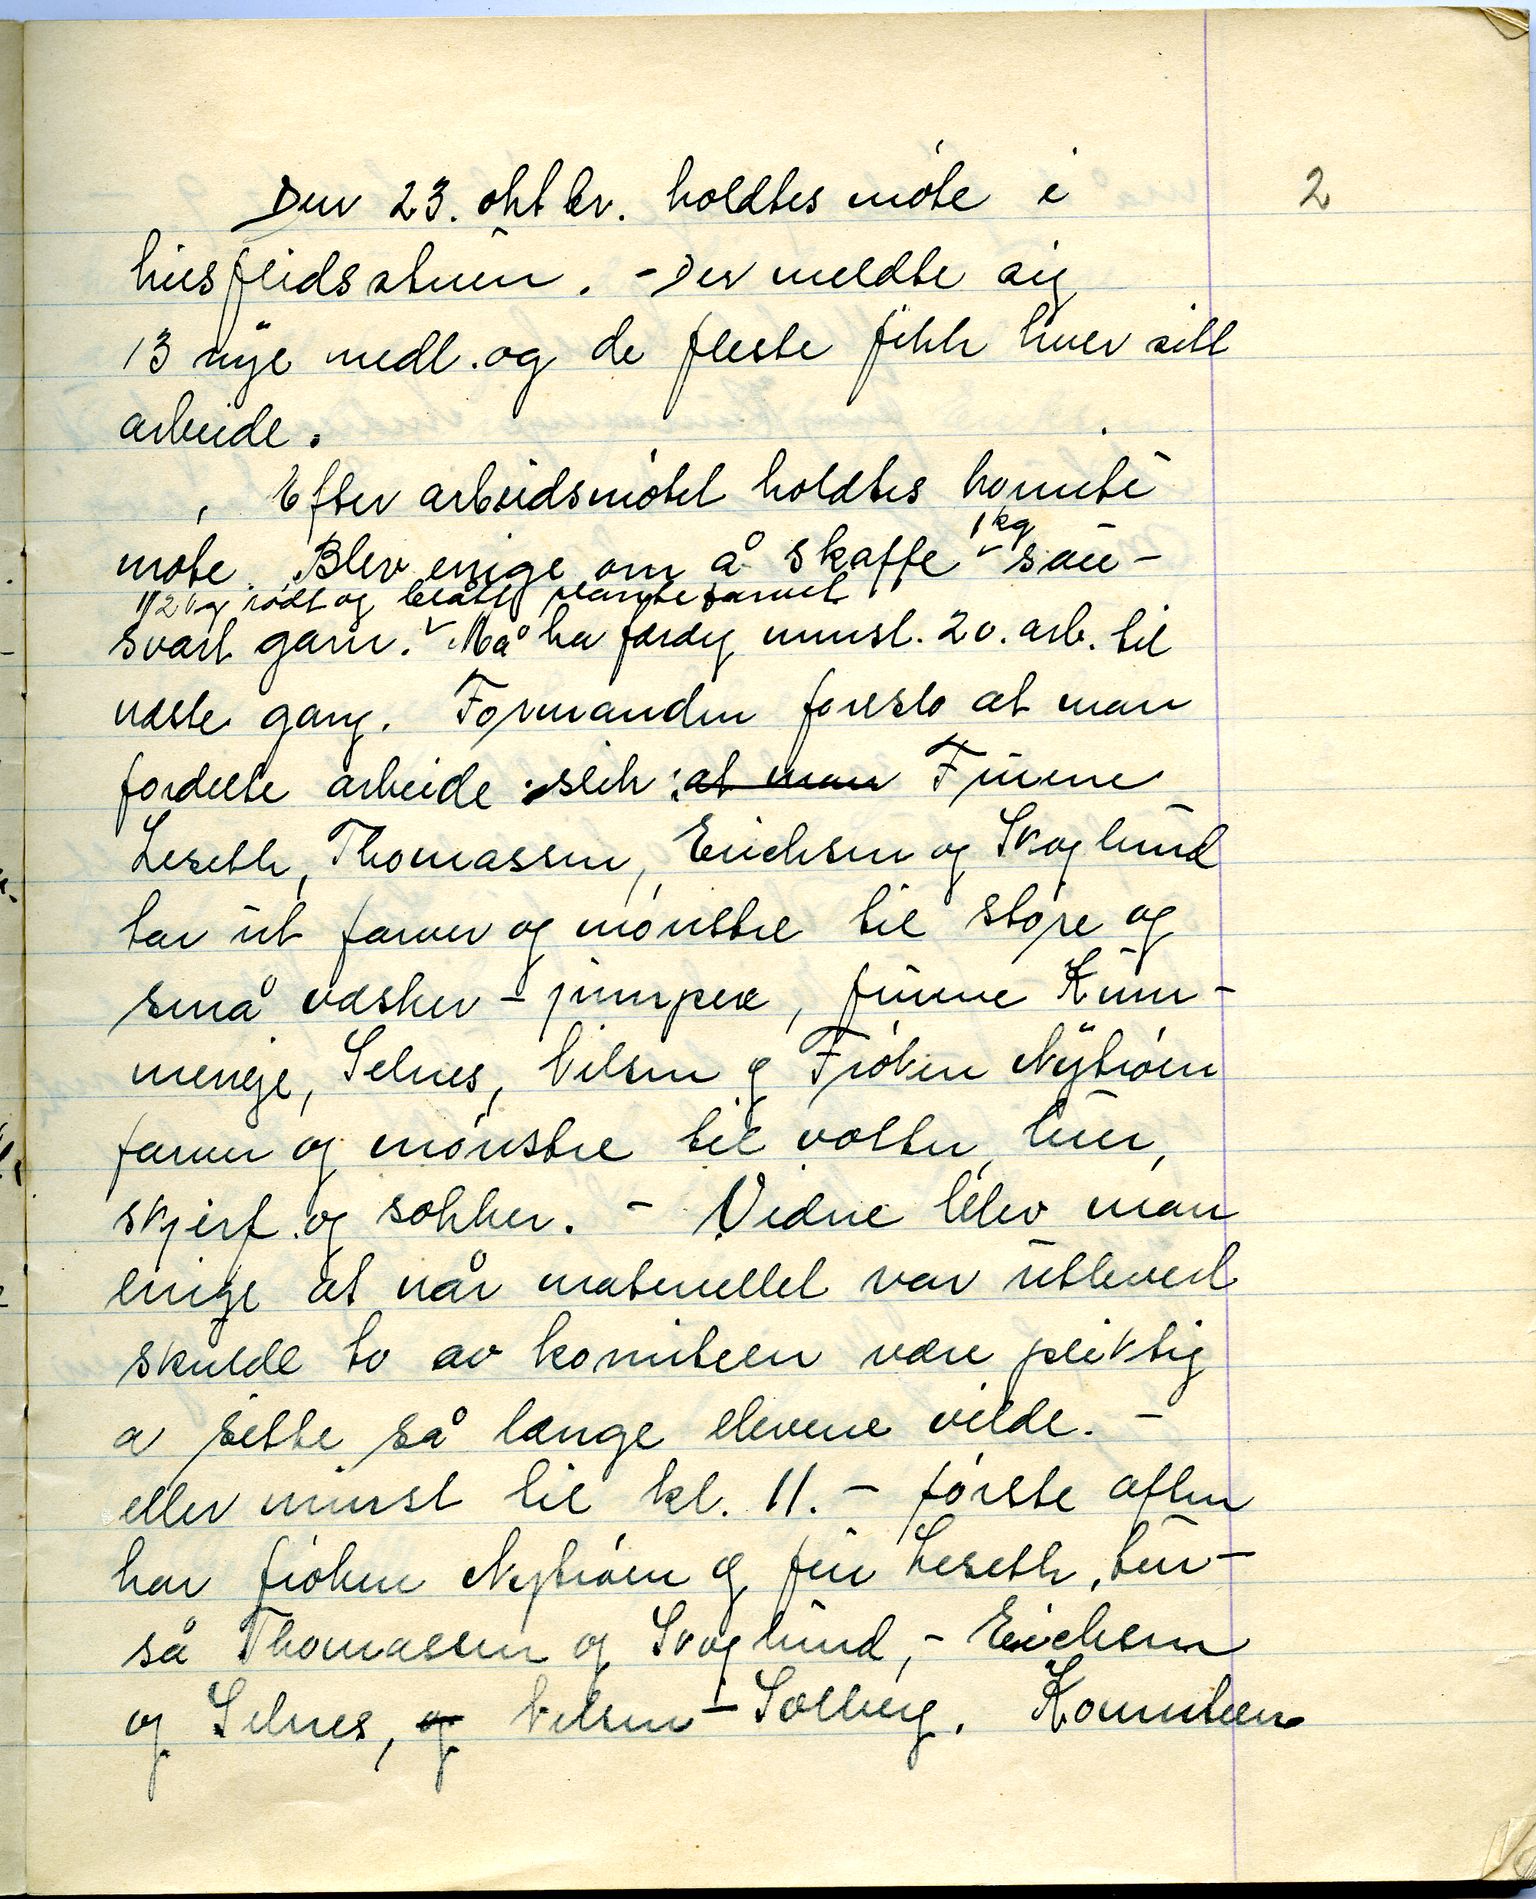 2
Den 23. oktbr. holdtes møte i
husflidsstuen. - Der meldte sig
13 nye medl. og de fleste fikk hver sitt
arbeide.
Efter arbeidsmøtet holdtes komite
møte. Blev enige om å skaffe 1 kg sau-
1/2 kg rødt og blått plantefarvet
svart garn. Må ha færdig minst. 20. arb. til
næste gang. Formanden foreslo at man
fordelte arbeide slik: at man Fruene
Leseth, Thomassen, Erichsen og Skoglund
tar ut farver og mønstre til store og
små vesker - jumpere, fruene Kum-
meneje, Selnes, Nilsen og Frøken Nytrøen
farver og mønstre til votter, luer,
skjerf og sokker. - Videre blev man
enige at når materiellet var utlevert
skulde to av komiteen være pliktig
a sitte så lenge elevene vilde. -
eller minst til kl. 11. - første aften
har frøken Nytrøen og fru Leseth, der-
så Thomassen og Skoglund, - Erichsen
og Selnes, og Nilsen - Solberg. Komiteen